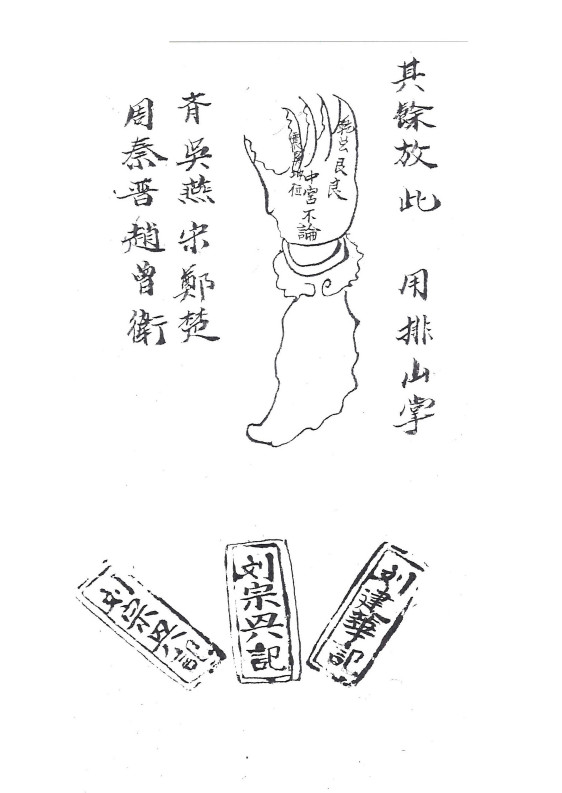 其餘放此 用排山掌
中宮不論
吳燕宋鄭楚
周秦晋趙曾衛
刘建華記
刘宗兴記
刘宗兴記